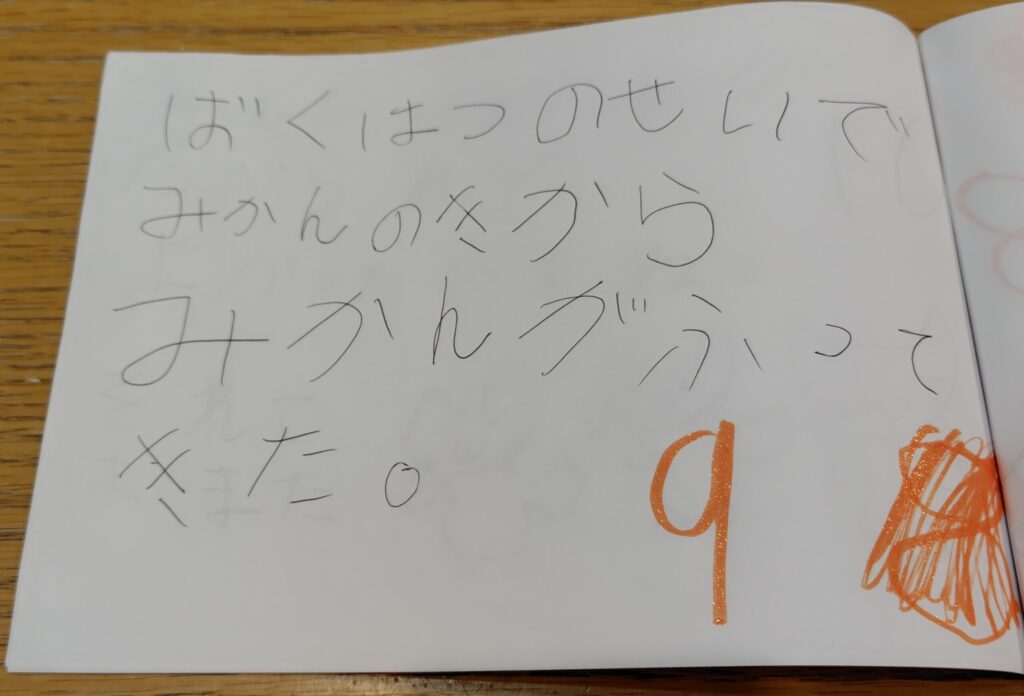 ばくはつのせいで
みかんのきから
みかんがふって
きた。
9